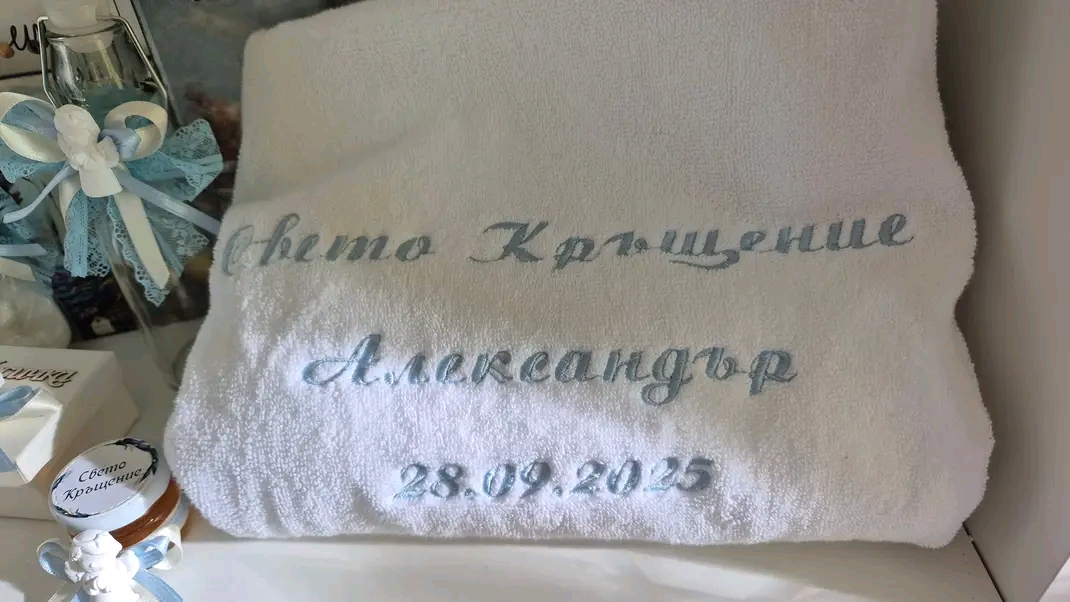 Свето Кръщение
Александър
28.09.2025
Свето
Кръщение